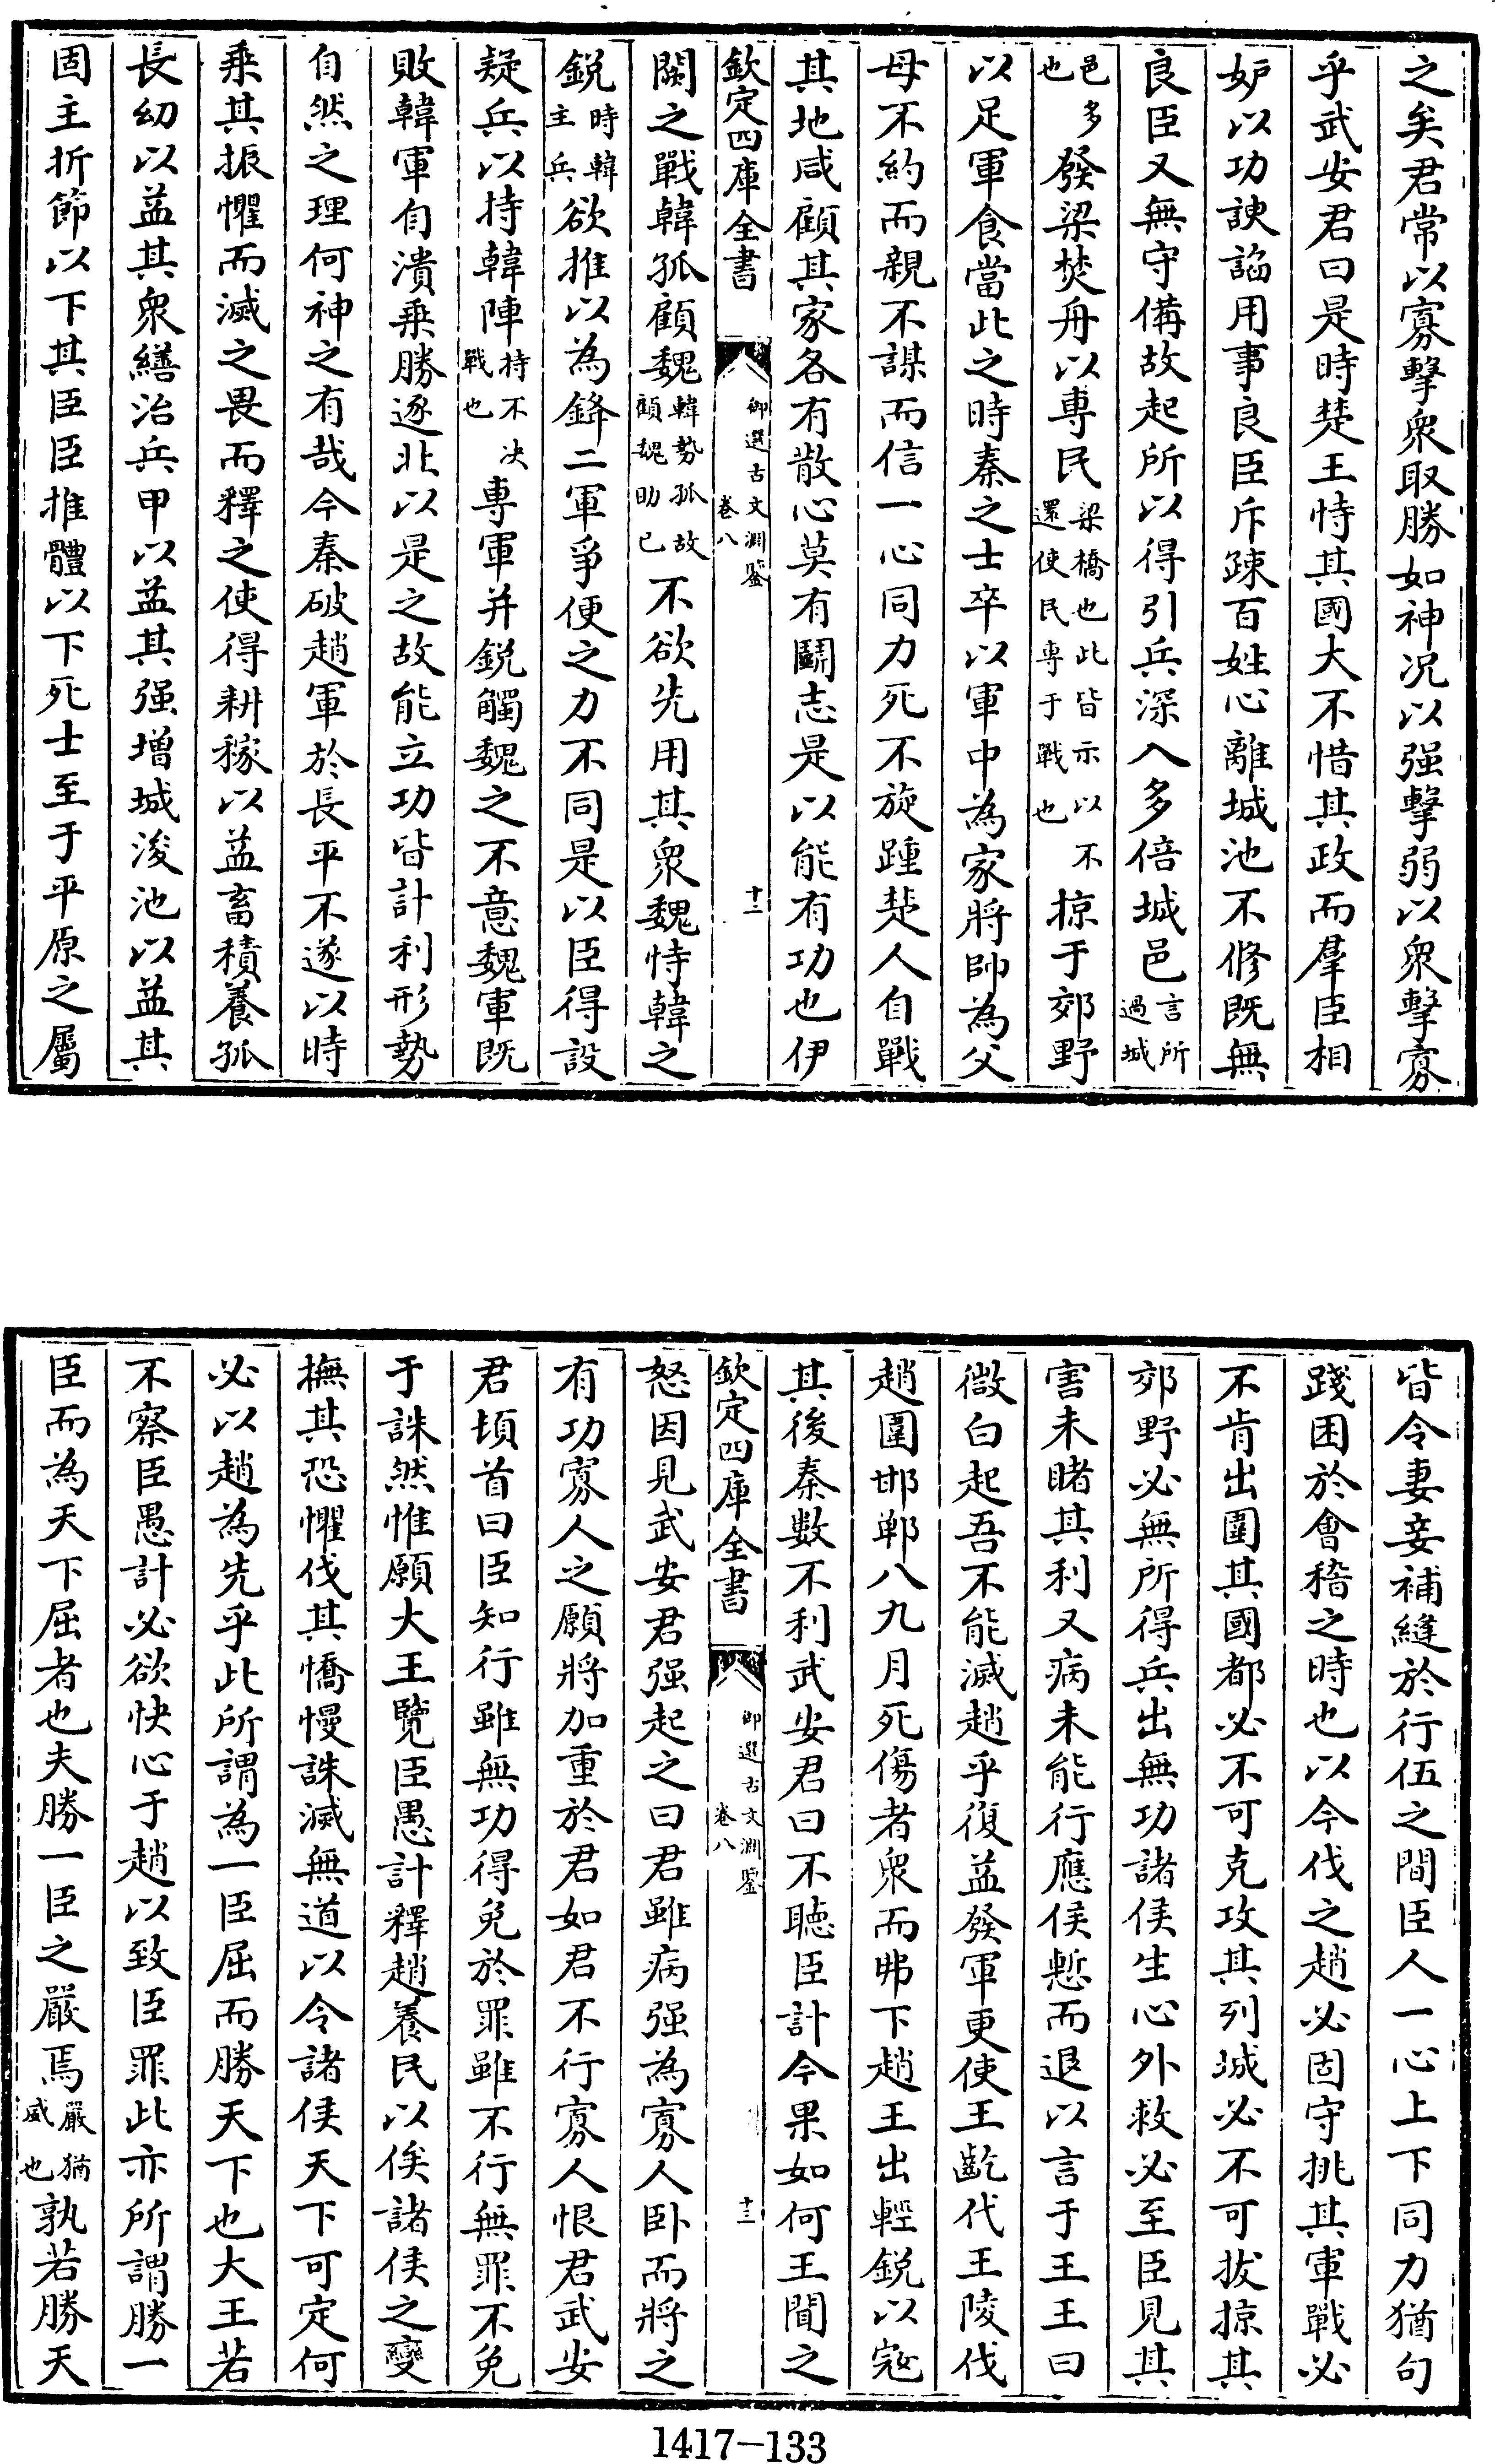 之矣君常以寡擊衆取勝如神况以强擊弱以衆擊寡
乎武安君曰是時楚王恃其國大不惜其政而羣臣相
妒以功諛諂用事良臣斥疎百姓心離城池不修既無
良臣又無守備故起所以得引兵深入多倍城邑言所過城
邑多也發梁焚舟以專民梁橋也此皆示以不還使民專于戰也掠于郊野
以足軍食當此之時秦之士卒以軍中為家將帥為父
母不約而親不謀而信一心同力死不旋踵楚人自戰
其地咸顧其家各有散心莫有鬭志是以能有功也伊
欽定四庫全書 御選古文淵鑒 卷八 十二
闕之戰韓孤顧魏韓勢孤故顧魏助己不欲先用其衆魏恃韓之
鋭時韓主兵欲推以為鋒二軍爭便之力不同是以臣得設
疑兵以持韓陣持不决戰也專軍并鋭觸魏之不意魏軍既
敗韓軍自潰乗勝逐北以是之故能立功皆計利形勢
自然之理何神之有哉今秦破趙軍於長平不遂以時
乗其振懼而滅之畏而釋之使得耕稼以益畜積養孤
長幼以益其衆繕治兵甲以益其强增城浚池以益其
固主折節以下其臣臣推體以下死士至于平原之屬
皆令妻妾補縫於行伍之間臣人一心上下同力猶句
踐困於會稽之時也以今伐之趙必固守挑其軍戰必
不肯出圍其國都必不可克攻其列城必不可拔掠其
郊野必無所得兵出無功諸侯生心外救必至臣見其
害未睹其利又病未能行應侯慙而退以言于王王曰
微白起吾不能滅趙乎復益發軍更使王齕代王陵伐
趙圍邯鄲八九月死傷者衆而弗下趙王出輕鋭以寇
其後秦數不利武安君曰不聴臣計今果如何王聞之
欽定四庫全書 御選古文淵鑒 卷八 十三
怒因見武安君强起之曰君雖病强為寡人卧而將之
有功寡人之願將加重於君如君不行寡人恨君武安
君頓首曰臣知行雖無功得免於罪雖不行無罪不免
于誅然惟願大王覽臣愚計釋趙養民以俟諸侯之變
撫其恐懼伐其憍慢誅滅無道以令諸侯天下可定何
必以趙為先乎此所謂為一臣屈而勝天下也大王若
不察臣愚計必欲快心于趙以致臣罪此亦所謂勝一
臣而為天下屈者也夫勝一臣之嚴焉嚴猶威也孰若勝天
1417-133